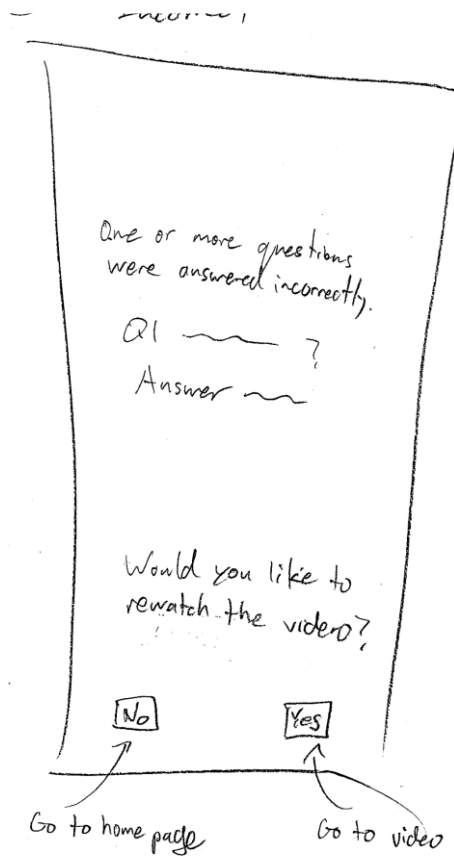 One or more questions
were answered incorrectly.
Q1 ?
Answer
Would you like to
rewatch the video?
No
Yes
Go to home page
Go to video